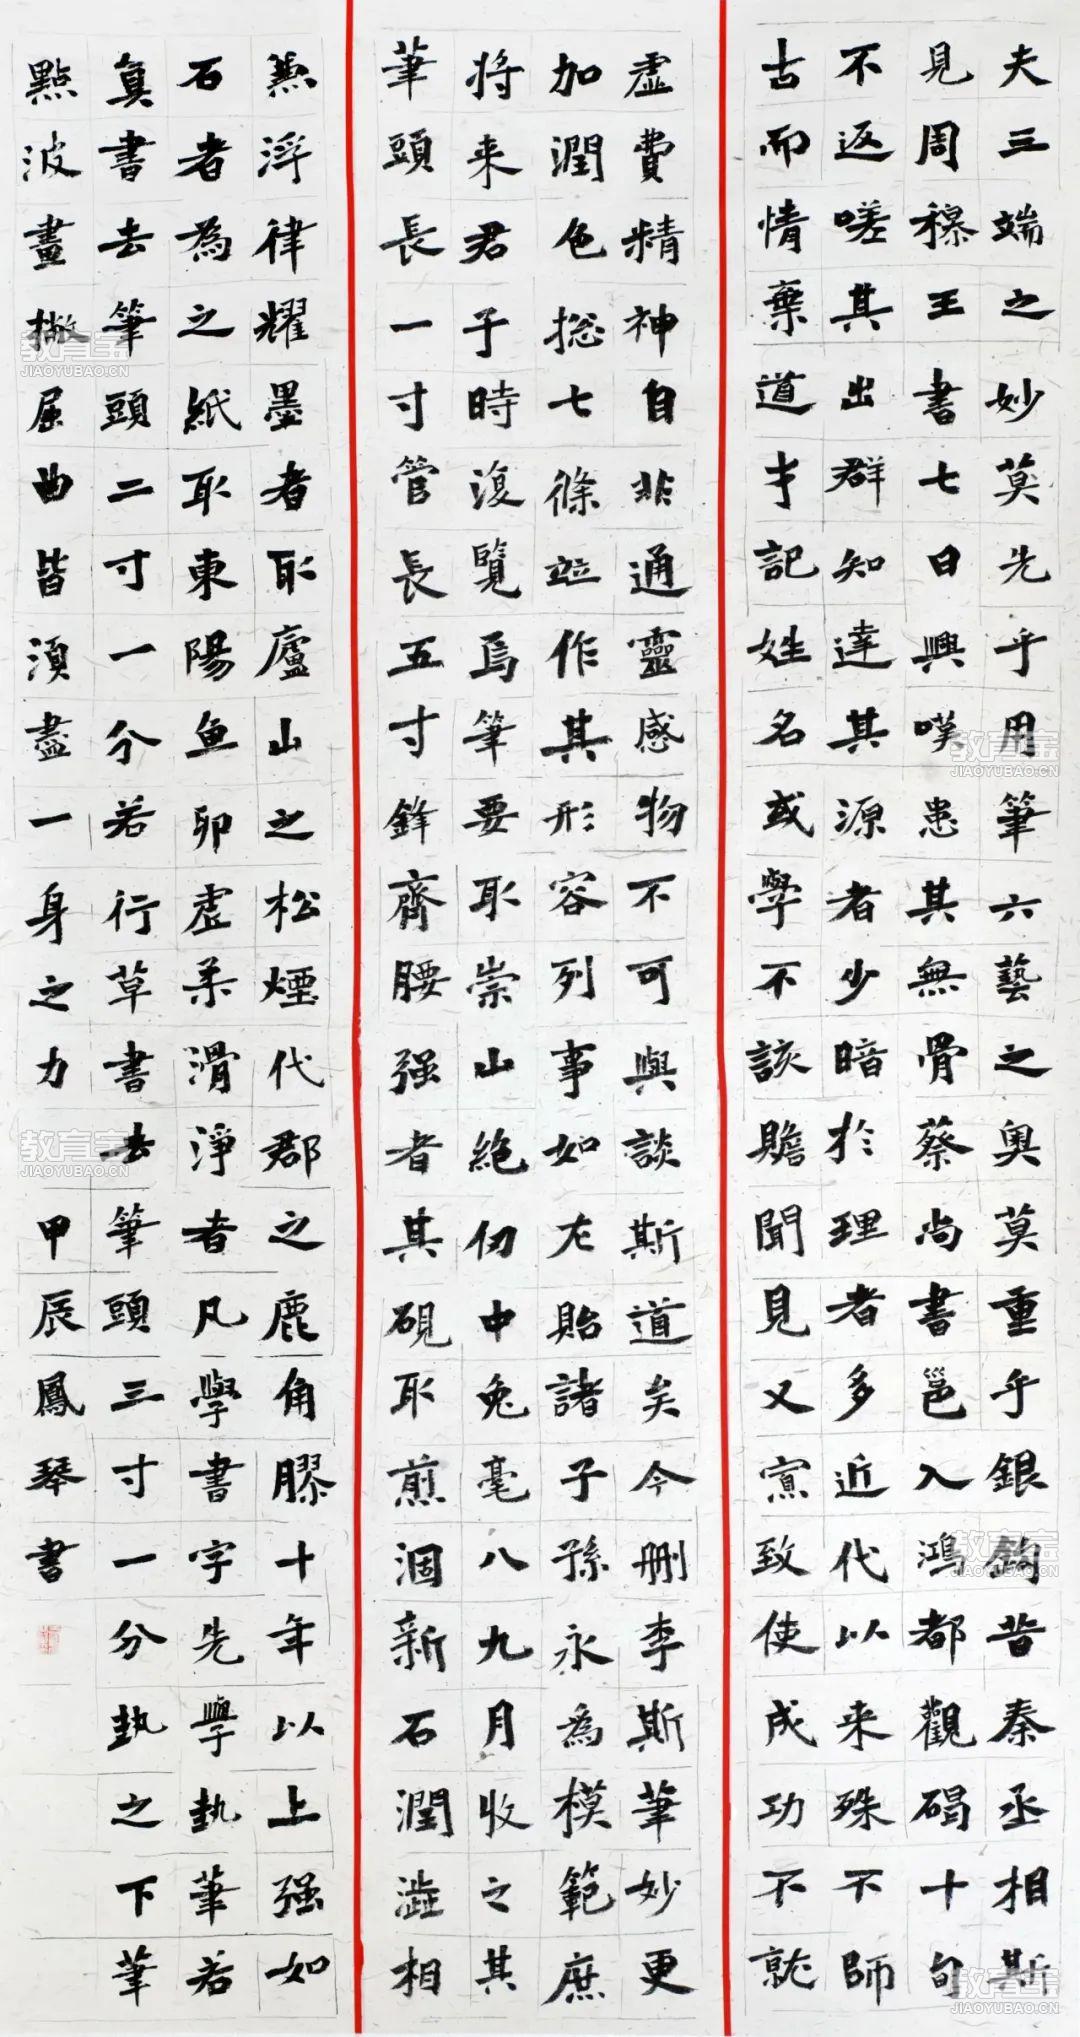 夫三端之妙莫先乎用筆六藝之奥莫重乎銀鉤昔秦丞相斯
見周穆王書七日興嘆患其無骨蔡尚書邕入鴻都觀碣十旬
不返嗟其出群知達其源者少暗於理者多近代以来殊不師
古而情棄道才記姓名或學不該贍聞見又寡致使成功不就
虚費精神自非通靈感物不可與談斯道矣今删李斯筆妙更
加潤色総七條竝作其形容列事如左貽諸子孫永為模範庶
将来君子時復覽焉筆要取崇山絶仞中兔毫八九月收之其
筆頭長一寸管長五寸鋒齊腰强者其硯取煎涸新石潤澁相
兼浮律耀墨者取廬山之松煙代郡之鹿角膠十年以上强如
石者為之紙取東陽魚卵虚柔滑淨者凡學書字先學執筆若
真書去筆頭二寸一分若行草書去筆頭三寸一分執之下筆
點波畫撇屈曲皆須盡一身之力甲辰鳳琴書
教育宝
JIAOYUBAO.CN
教育宝
JIAOYUBAO.CN
教育宝
JIAOYUBAO.CN
教育宝
JIAOYUBAO.CN
教育宝
JIAOYUBAO.CN